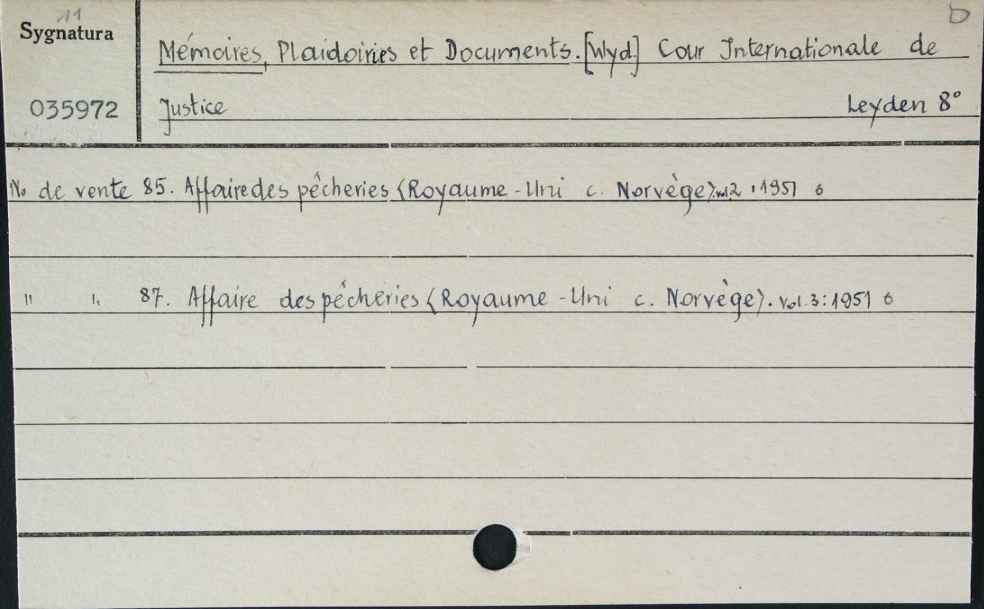 11 D
Sygnatura
Mémoires, Plaidoiries et Documents. [Wyd] Cour Internationale de
035972 Justice Leyden 8°
No de vente 85. Affaire des pêcheries (Royaume-Uni c. Norvège). vol. 2 : 1951 6
" " 87. Affaire des pêcheries (Royaume-Uni c. Norvège). vol. 3: 1951 6